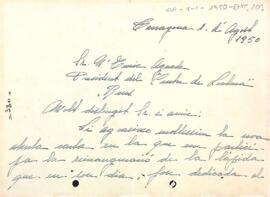 Tarragona 1 d'Agost
1950
Sr. Nº Enric Aguadé
President del "Centre de Lectura"
Reus
Molt distingit Sr. i amic:
Li agraeixo moltíssim la seva
atenta carta en la que em partici-
pa la reinauguració de la làpida
que en son dia, fou dedicada al